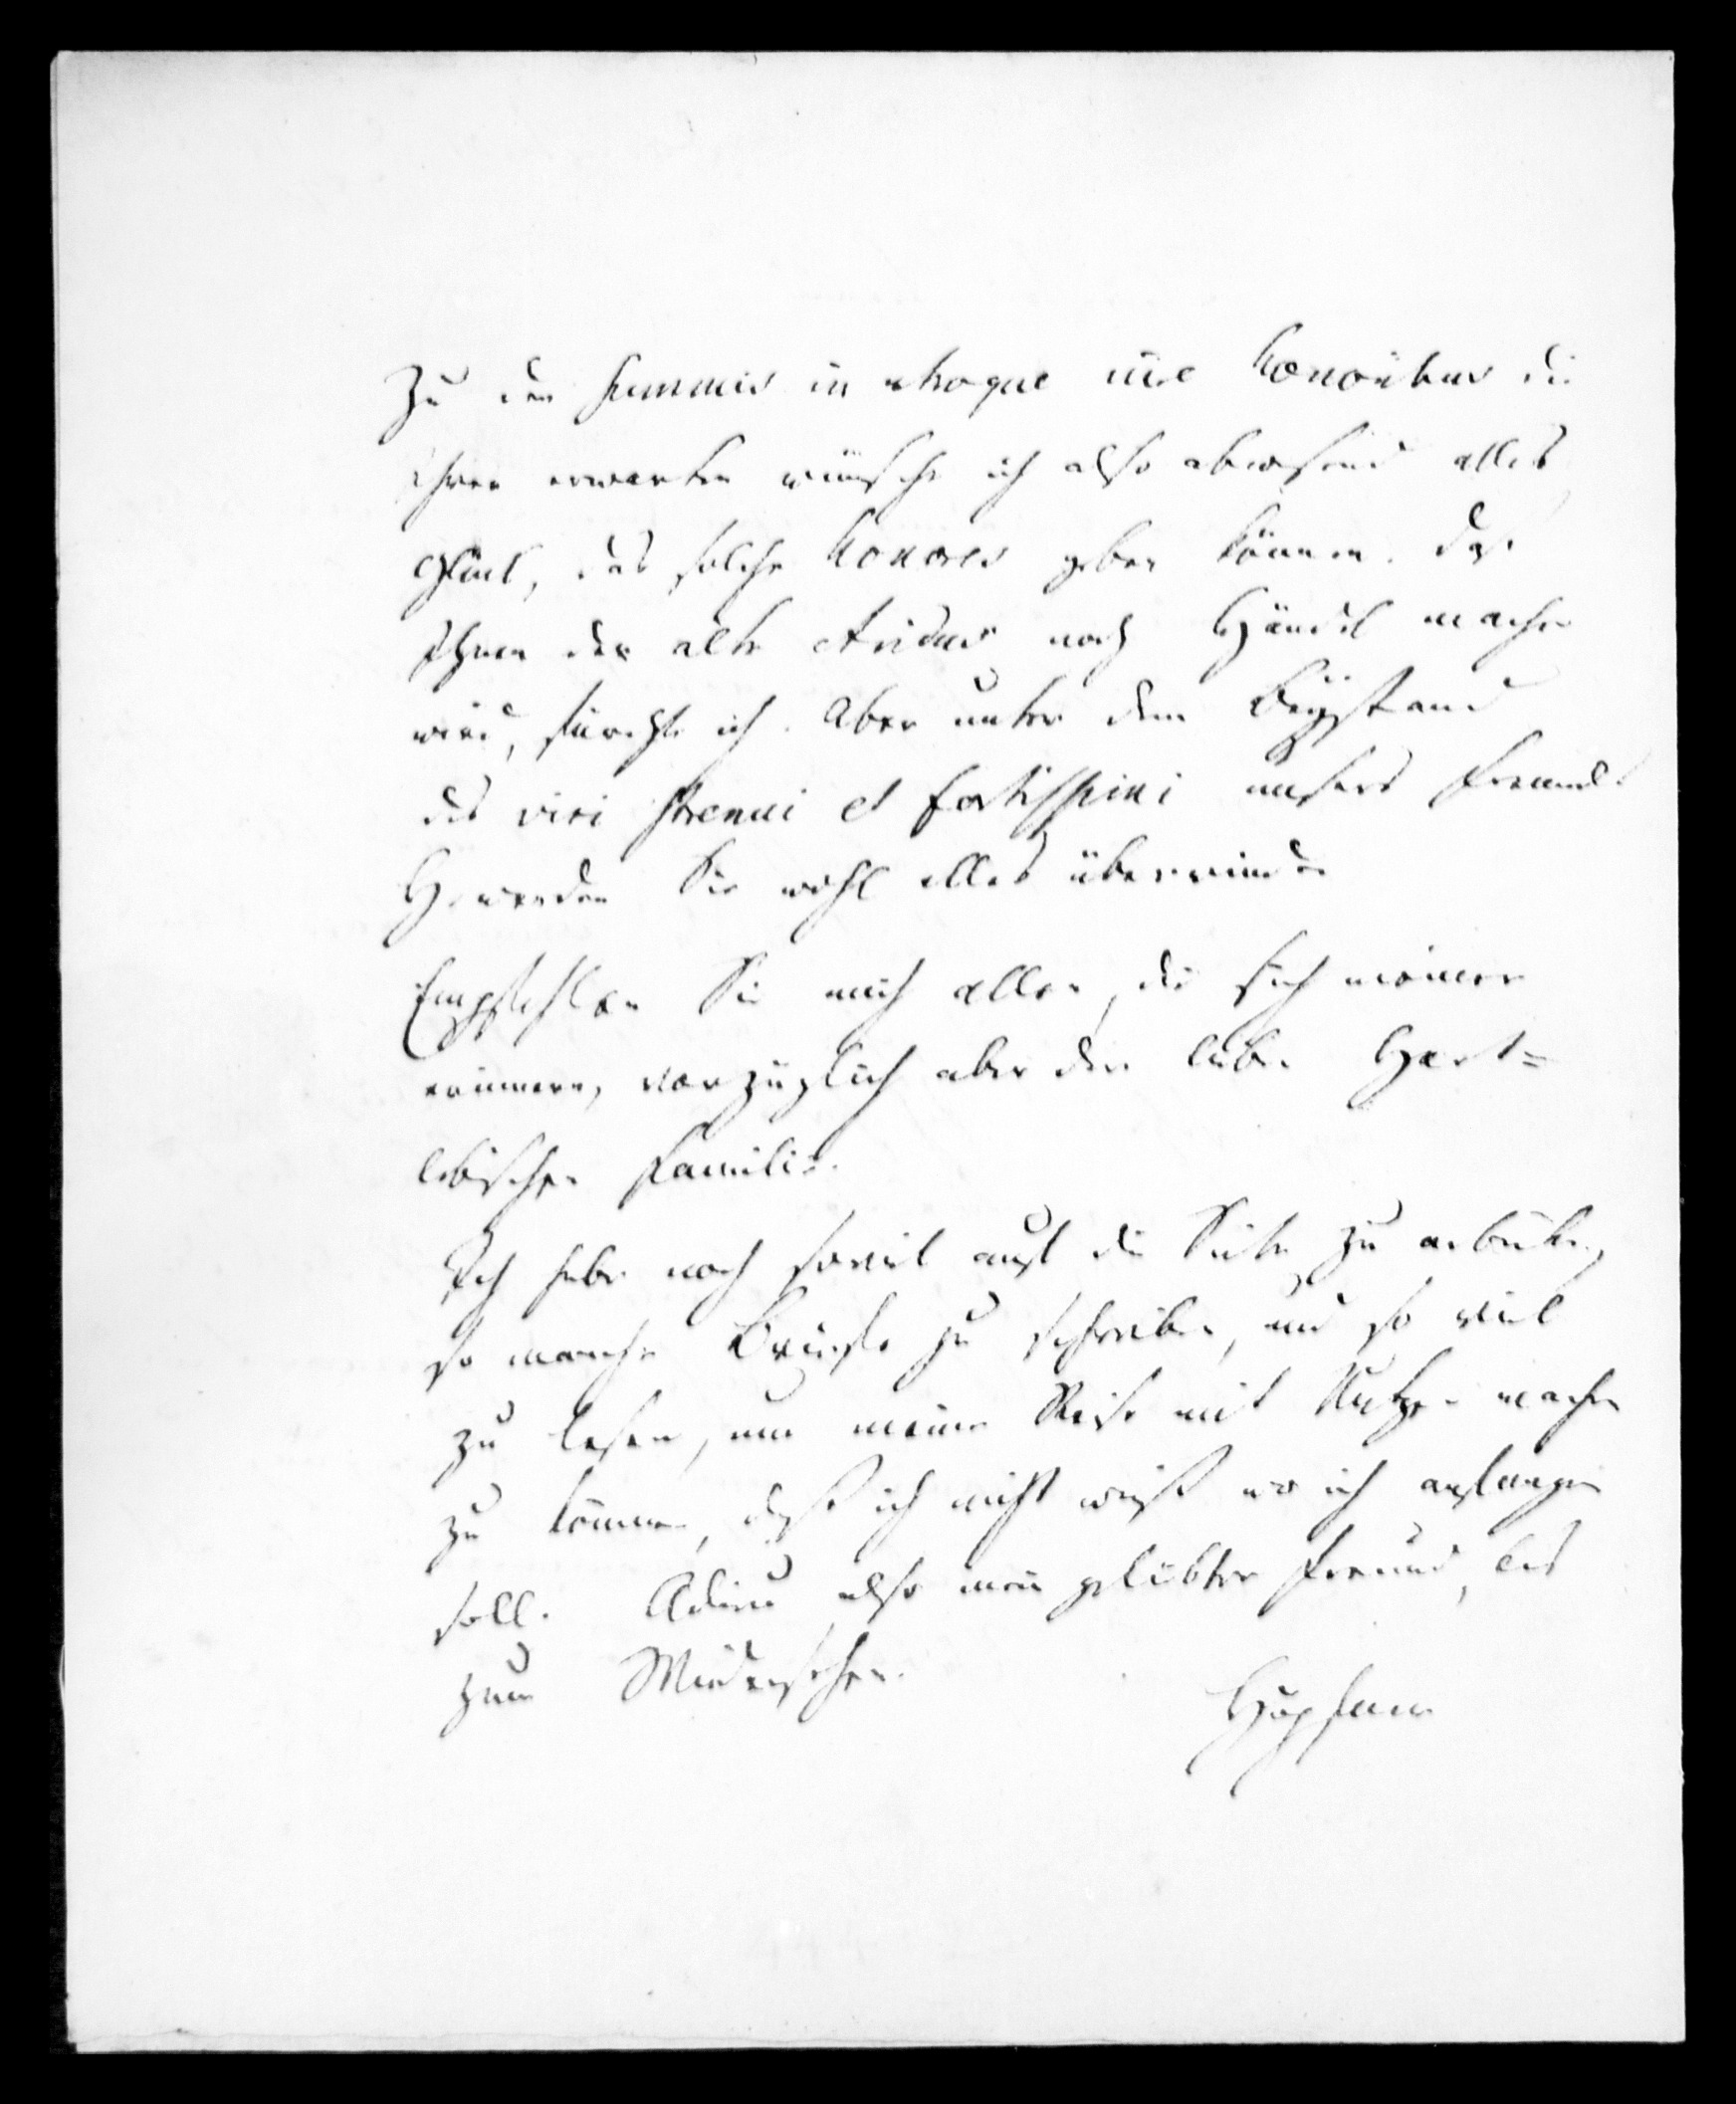 Zu den summis in utroque iure honoribus die
Ihrer erwarten wünsche ich also abwesend alles
Glük, das solche honores geben können. Daß
Ihnen der alte Aridus noch Händel machen
wird, fürchte ich. Aber unter dem Beystand
des viri strenui et fortissimi unsers Freundes
H. werden Sie wohl alles überwinden
Empfehlen Sie mich allen, die sich meiner
erinnern, vorzüglich aber der lieben Hert=
lebischen Familie.
Ich habe noch soviel auf die Seite zu arbeiten,
so manche Briefe zu schreiben, und so viel
zu lesen, um meine Reise mit Nutzen machen
zu können, daß ich nicht weiß wo ich anfangen
soll. Adieu also mein geliebter Freund, bis
zum Wiedersehen.
Höpfner